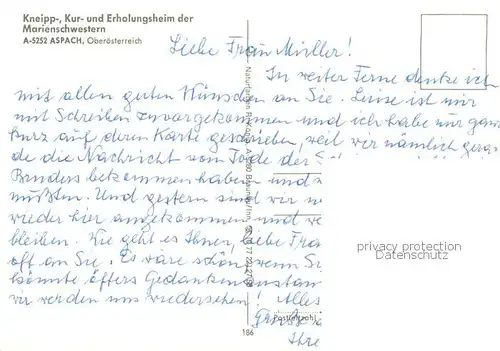 Kneipp-, Kur- und Erholungsheim der
Marienschwestern
A-5252 ASPACH, Oberösterreich
Liebe Frau Müller!
In weiter Ferne denke ich
mit allen guten Wünschen an Sie. Luise ist mir
mit Schreiben zuvorgekommen und ich habe nur ganz
kurz auf deren Karte geschrieben, weil wir nämlich gera-
de die Nachricht vom Tode der
Bruders bekommen haben und
mußten. Und gestern sind wir
wieder hier angekommen und
bleiben. Wie geht es Ihnen, liebe Frau
oft an Sie. Es wäre schön wenn
könnte öfters Gedankenaustau
wir werden uns wiedersehen! Alles
Ihre
privacy protection
Datenschutz
Postleitzahl
186